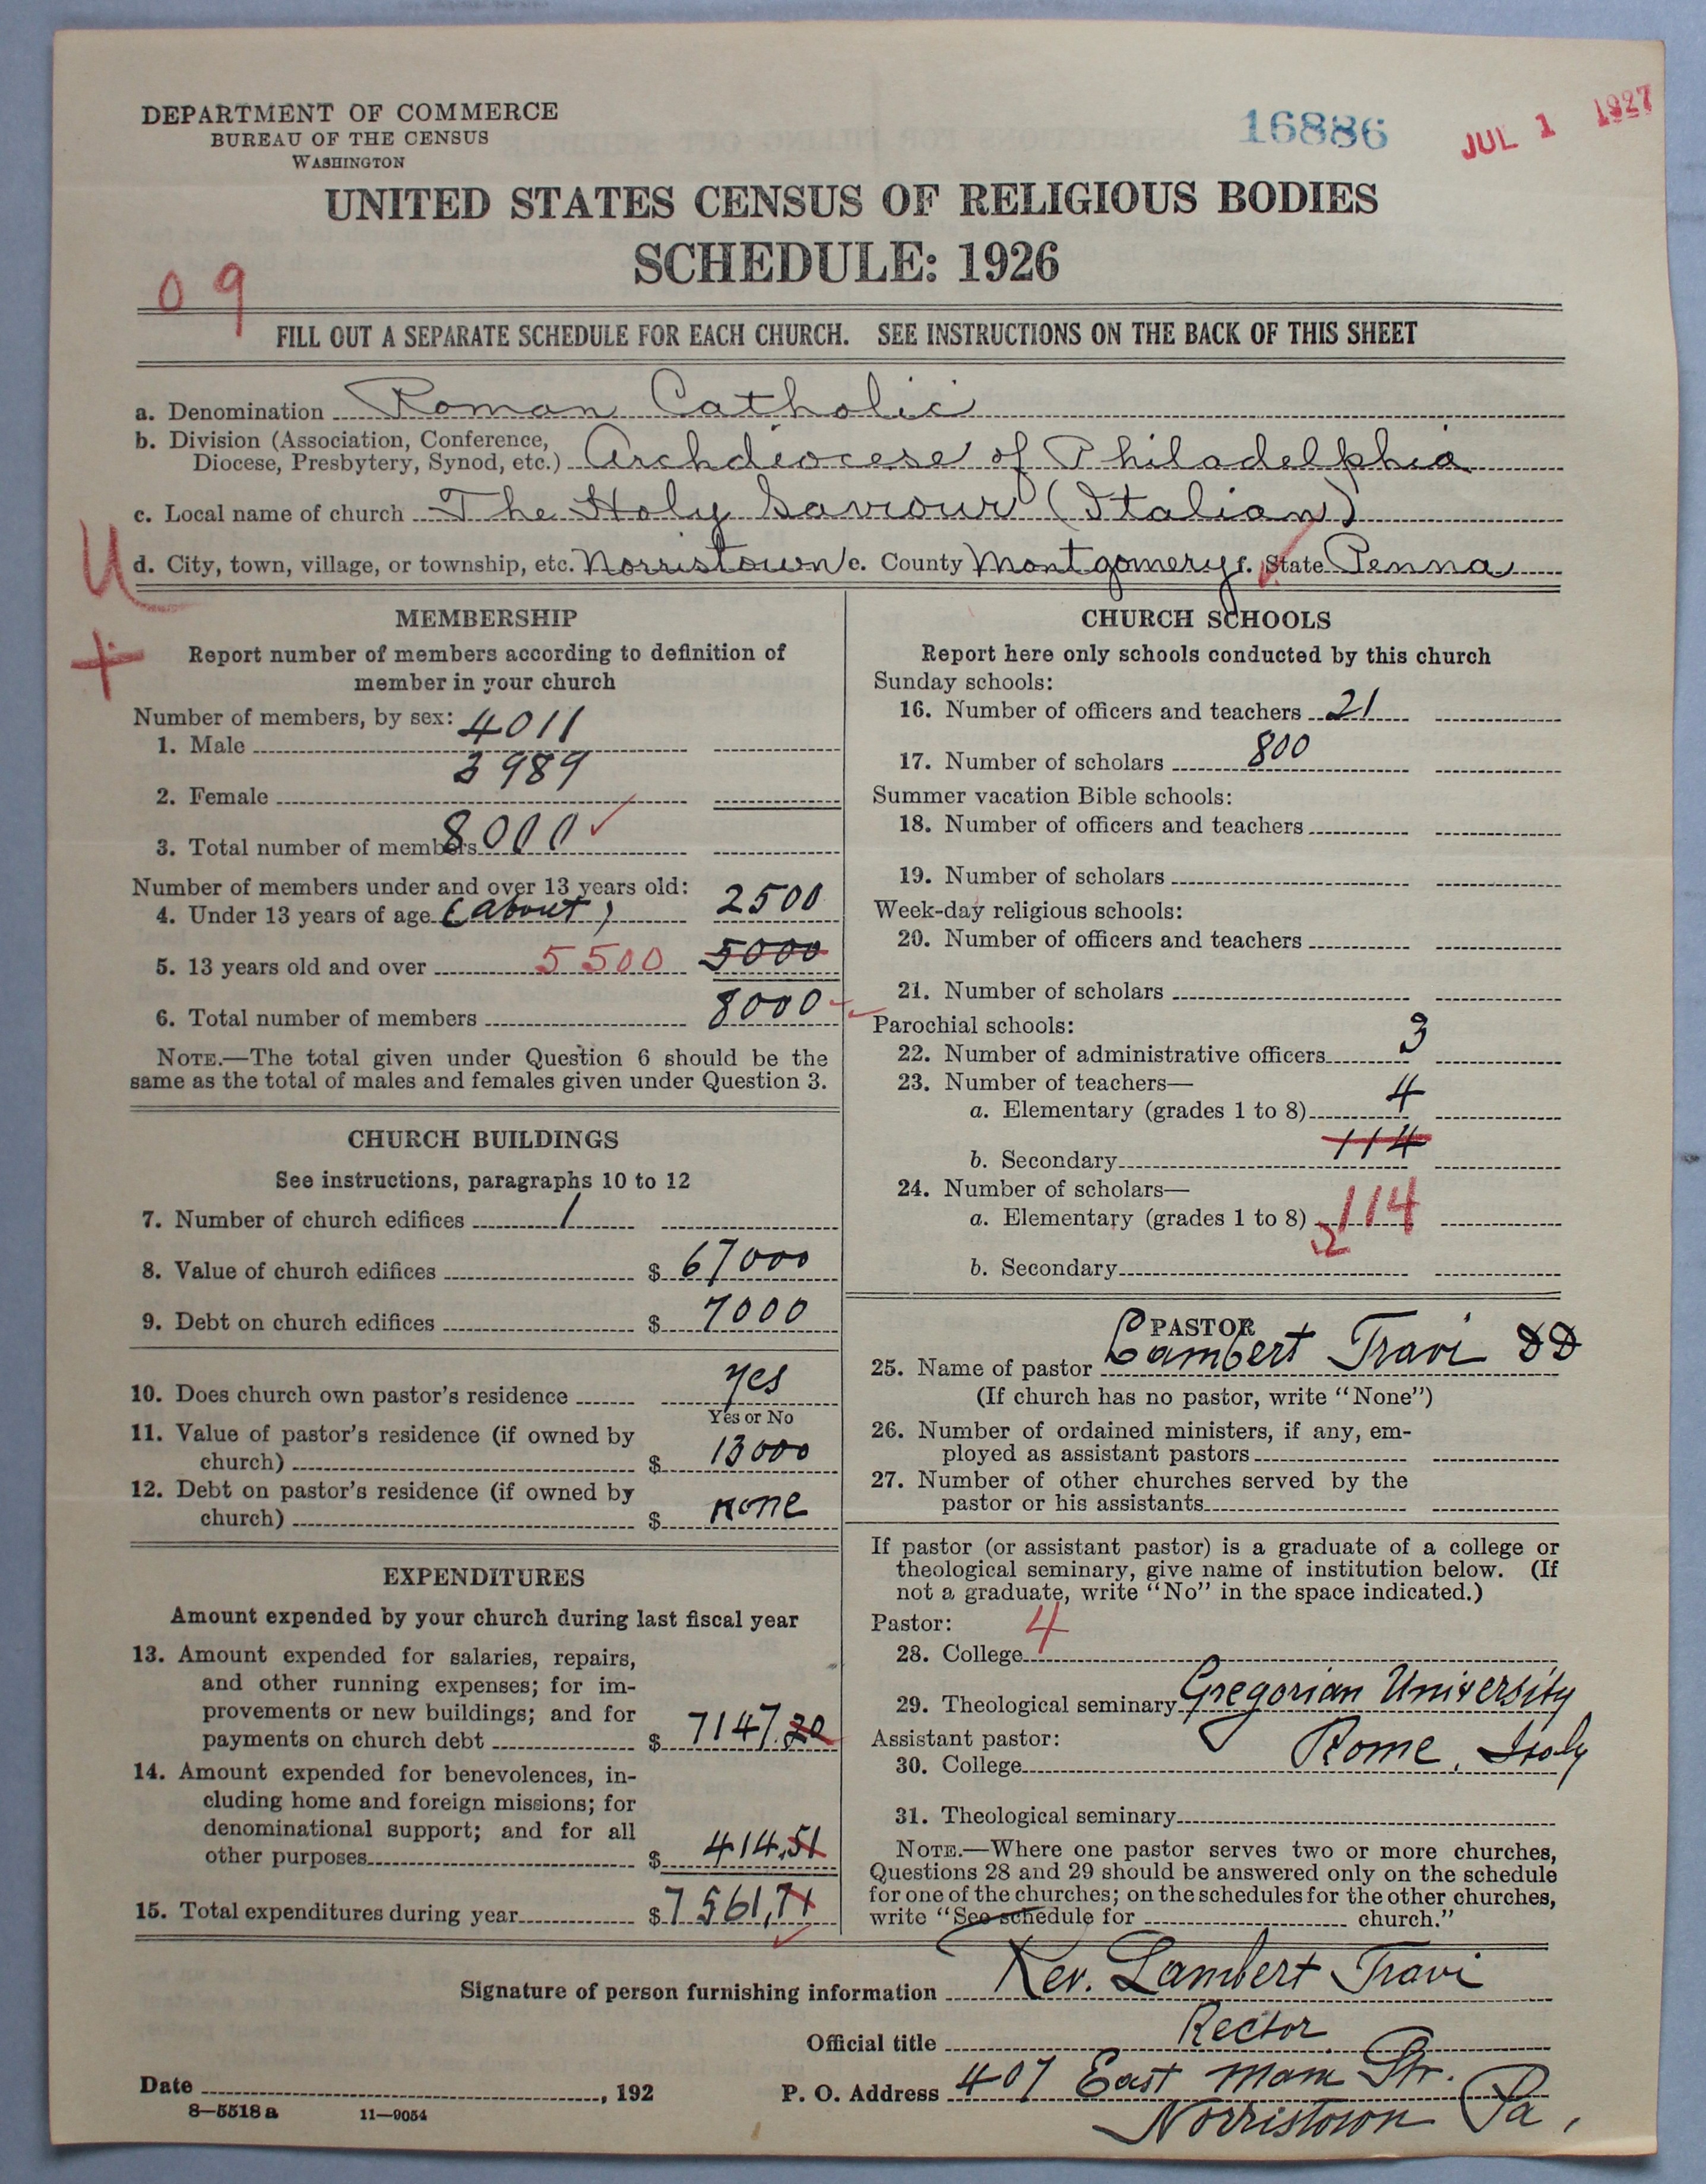 DEPARTMENT OF COMMERCE
BUREAU OF THE CENSUS
WASHINGTON
16886
JUL 1 1927
UNITED STATES CENSUS OF RELIGIOUS BODIES
SCHEDULE: 1926
09
FILL OUT A SEPARATE SCHEDULE FOR EACH CHURCH. SEE INSTRUCTIONS ON THE BACK OF THIS SHEET
a. Denomination Roman Catholic
b. Division (Association, Conference, Diocese, Presbytery, Synod, etc.) Archdiocese of Philadelphia
c. Local name of church The Holy Saviour (Italian)
U
d. City, town, village, or township, etc. Norristown e. County Montgomery f. State Penna
+
MEMBERSHIP
Report number of members according to definition of
member in your church
Number of members, by sex:
1. Male 4011
2. Female 3989
3. Total number of members 8000 ✓
Number of members under and over 13 years old:
4. Under 13 years of age (about) 2500
5. 13 years old and over 5500 5000
6. Total number of members 8000
NOTE.—The total given under Question 6 should be the
same as the total of males and females given under Question 3.
CHURCH BUILDINGS
See instructions, paragraphs 10 to 12
7. Number of church edifices 1
8. Value of church edifices $ 67000
9. Debt on church edifices $ 7000
10. Does church own pastor's residence yes
Yes or No
11. Value of pastor's residence (if owned by
church) $ 13000
12. Debt on pastor's residence (if owned by
church) $ none
EXPENDITURES
Amount expended by your church during last fiscal year
13. Amount expended for salaries, repairs,
and other running expenses; for im-
provements or new buildings; and for
payments on church debt $ 7147.20
14. Amount expended for benevolences, in-
cluding home and foreign missions; for
denominational support; and for all
other purposes $ 414.51
15. Total expenditures during year $ 7561,71
CHURCH SCHOOLS
Report here only schools conducted by this church
Sunday schools:
16. Number of officers and teachers 21
17. Number of scholars 800
Summer vacation Bible schools:
18. Number of officers and teachers
19. Number of scholars
Week-day religious schools:
20. Number of officers and teachers
21. Number of scholars
Parochial schools:
22. Number of administrative officers 3
23. Number of teachers—
a. Elementary (grades 1 to 8) 4
b. Secondary 114
24. Number of scholars—
a. Elementary (grades 1 to 8) 114
2
b. Secondary
PASTOR
25. Name of pastor Lambert Travi DD
(If church has no pastor, write "None")
26. Number of ordained ministers, if any, em-
ployed as assistant pastors
27. Number of other churches served by the
pastor or his assistants
If pastor (or assistant pastor) is a graduate of a college or
theological seminary, give name of institution below. (If
not a graduate, write "No" in the space indicated.)
Pastor:
28. College 4
29. Theological seminary Gregorian University
Assistant pastor: Rome, Italy
30. College
31. Theological seminary
NOTE.—Where one pastor serves two or more churches,
Questions 28 and 29 should be answered only on the schedule
for one of the churches; on the schedules for the other churches,
write "See schedule for church."
Signature of person furnishing information Rev. Lambert Travi
Official title Rector
Date , 192 P. O. Address 407 East Main Str.
Norristown Pa,
8—5518 a 11—9054